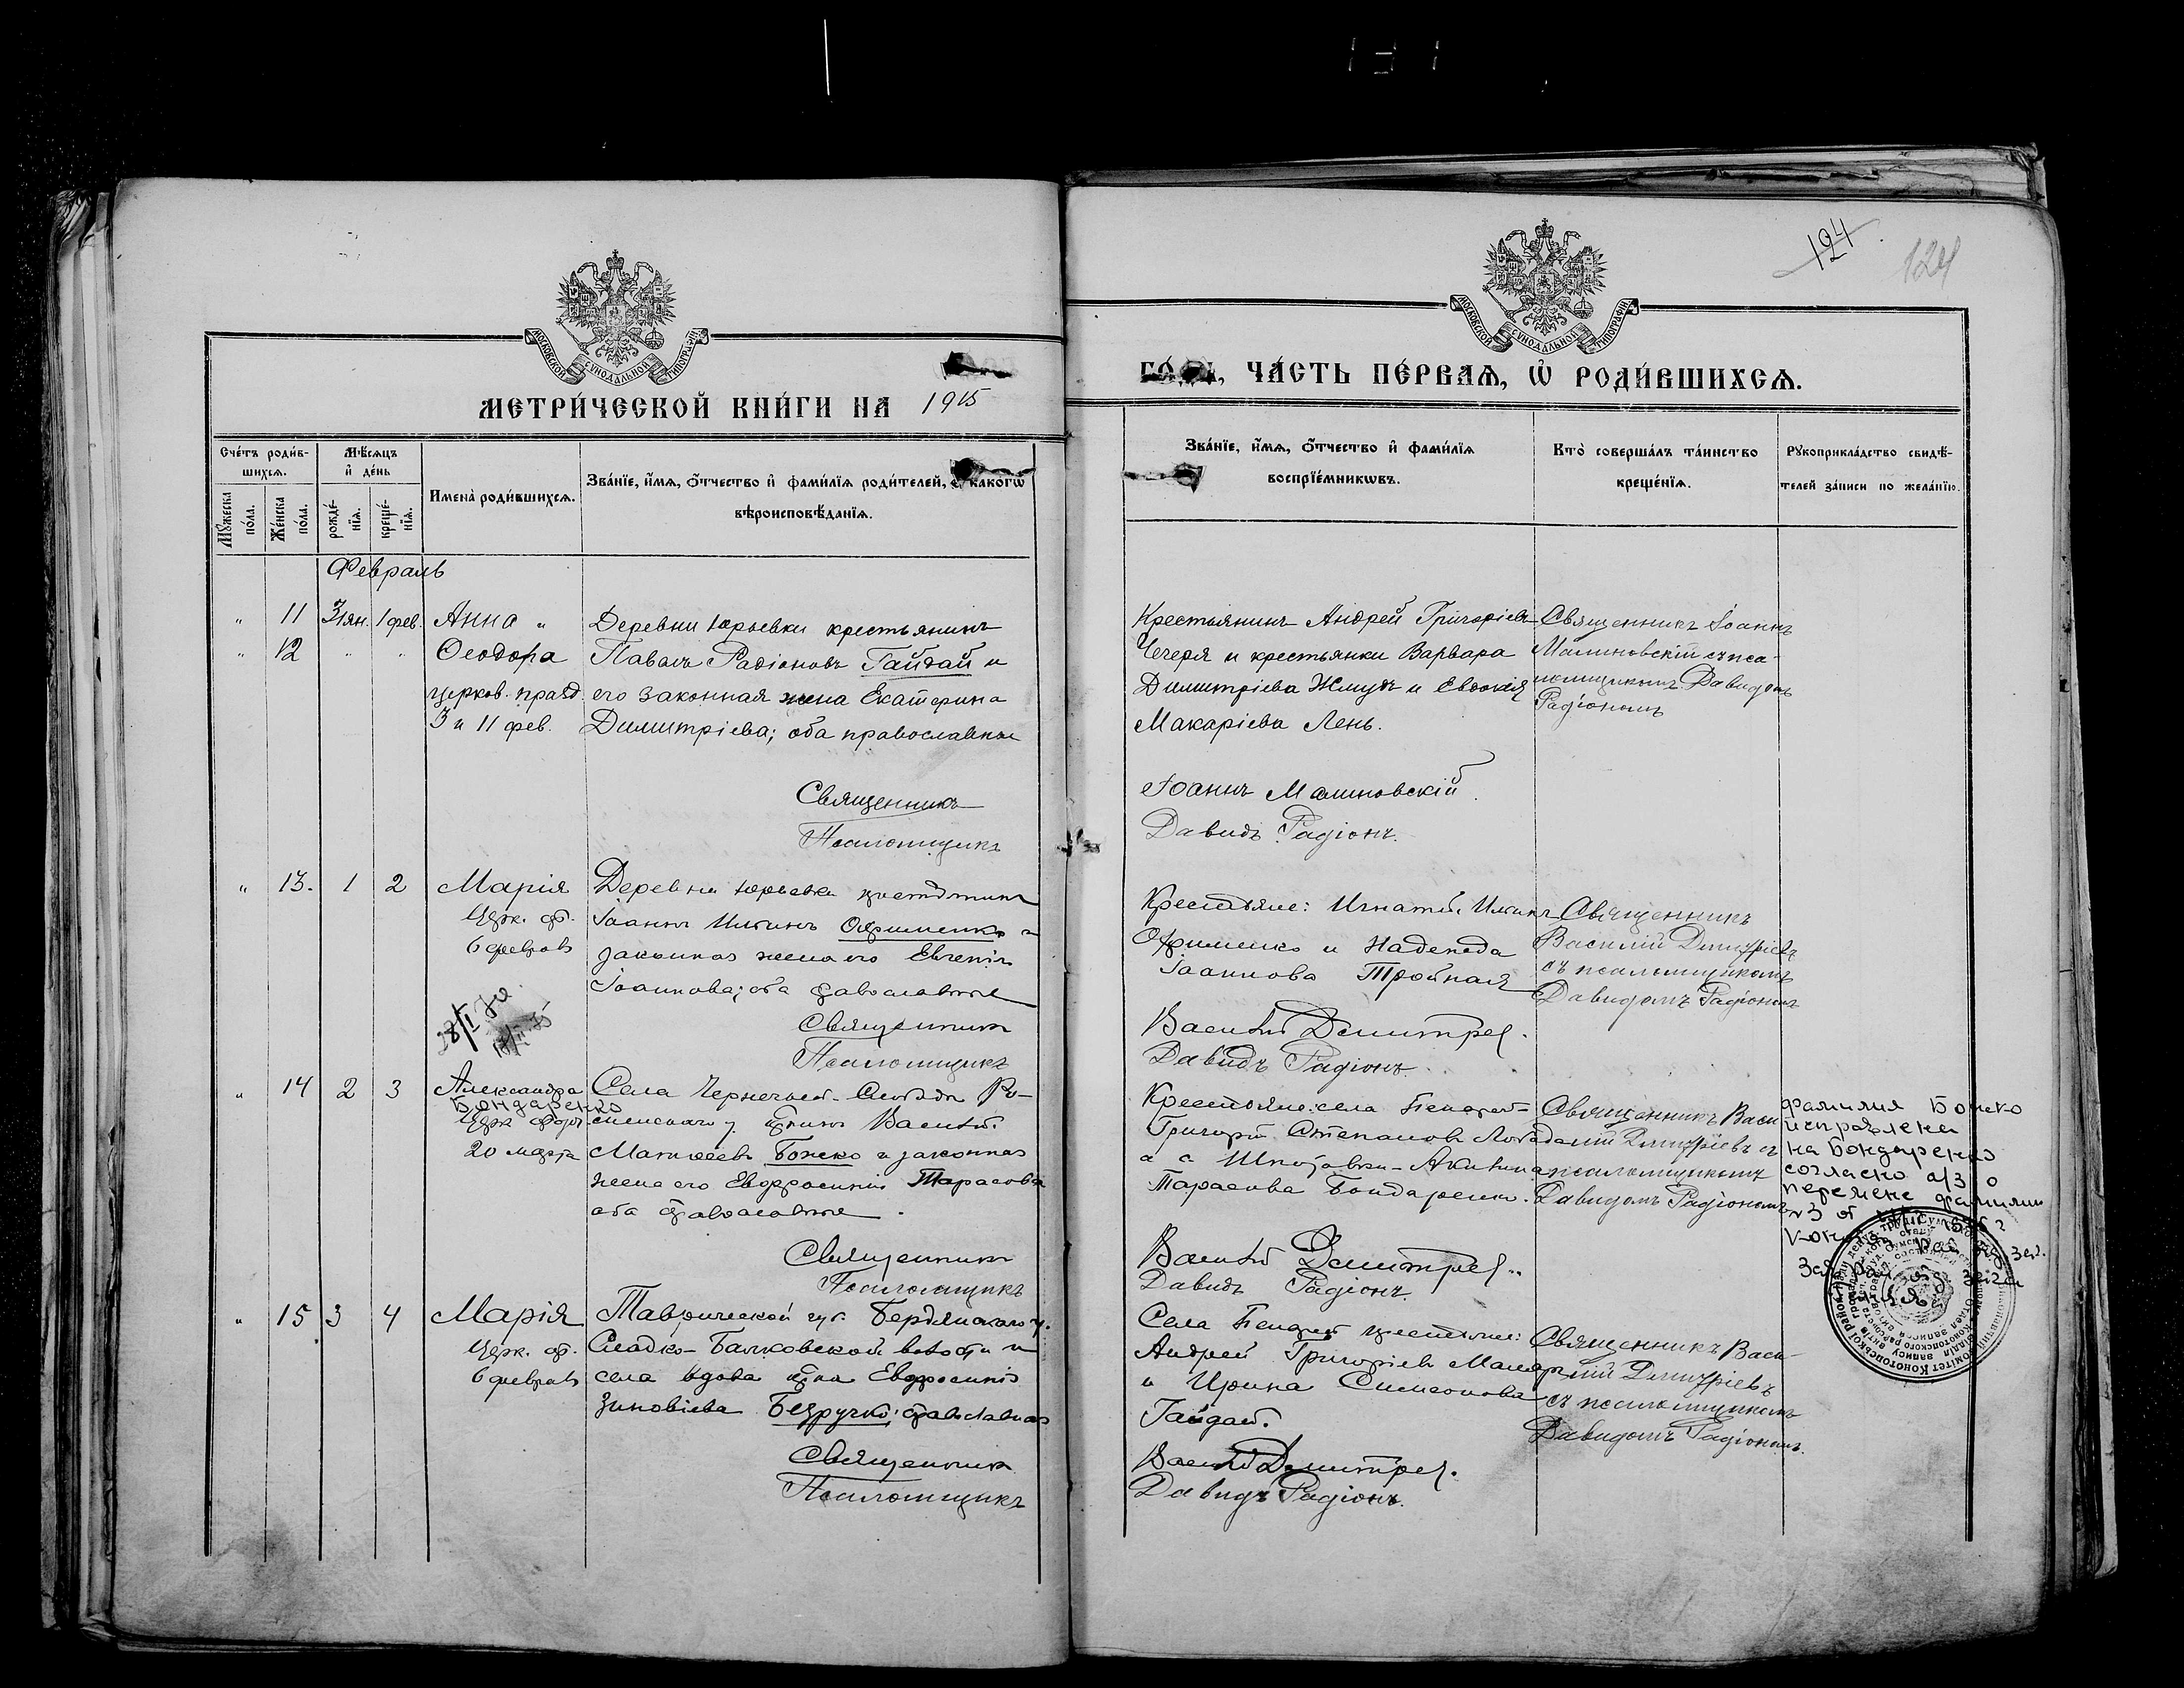 124
124
МОСКОВСКОЙ СѴНОДАЛЬНОЙ ТИПОГРАФІИ
МОСКОВСКОЙ СѴНОДАЛЬНОЙ ТИПОГРАФІИ
МЕТРИ́ЧЕСКОЙ КНИ́ГИ НА 1915
ЧА́СТЬ ПЕ́РВАѦ, Ѡ҆ РОДИ́ВШИХСѦ.
Сче́тъ роди́в-
шихсѧ.
Мѣ́сѧцъ
и҆ де́нь
Мꙋ́жеска
по́ла.
Же́нска
по́ла.
рожде́-
нїѧ.
креще́-
нїѧ.
Имена̀ роди́вшихсѧ.
Зва́нїе, и҆́мѧ, ѻ҆́тчество и҆ фами́лїѧ роди́телей, и҆ како́гѡ
вѣроисповѣ́данїѧ.
Зва́нїе, и҆́мѧ, ѻ҆́тчество и҆ фами́лїѧ
воспрїе́мникѡвъ.
Кто̀ соверша́лъ та́инство
креще́нїѧ.
Рꙋкоприкла́дство свидѣ́-
телей за́писи по жела́нїю.
Февраль
" 11 31 ян. 1 фев. Анна "
" 12 " " Ѳеодора
церков. празд.
3 и 11 фев.
Деревни Юрьевки крестьянинъ
Павелъ Радіоновъ Гайдай и
его законная жена Екатерина
Димитріева; оба православные
Священникъ
Псаломщикъ
Крестьянинъ Андрей Григоріевъ
Чечеря и крестьянки Варвара
Димитріева Жмудь и Евдокія
Макаріева Лень.
Іоаннъ Малиновскій
Давидъ Радіонъ.
Священникъ Іоаннъ
Малиновскій съ пса-
ломщикомъ Давидомъ
Радіономъ
" 13. 1 2 Марія
Церк. пр.
6 февраля
28/I
Деревни Юрьевки крестьянинъ
Іоаннъ Офименко и
законная жена его Евгенія
Іоаннова; оба православные
Священникъ
Псаломщикъ
Крестьяне: Игнатій
Офименко и Надежда
Іоаннова Тройная
Василій Димитріев.
Давидъ Радіонъ.
Священникъ
Василій Димитріевъ
съ псаломщикомъ
Давидомъ Радіономъ
" 14 2 3 Александра
Бондаренко
Церк. празд.
20 марта
Села Чернечьей-Слободы Ро-
менскаго у. Василій
Матѳеевъ Божко и законная
жена его Евфросинія Тарасова
оба православные.
Священникъ
Псаломщикъ
Крестьяне: села
Григорій Степановъ
и с.
Тарасова Бондаренко.
Василій Димитріев.
Давидъ Радіонъ.
Священникъ Васи-
лій Димитріевъ съ
псаломщикомъ
Давидомъ Радіономъ
фамилия Божко
исправлена
на Бондаренко
согласно а/з о
перемене фамилии
№3 от
" 15 3 4 Марія
Церк. пр.
6 февраля
Таврической губ. Бердянскаго у.
Сладко-Балковской волости и
села вдова Евфросинія
Зиновіева Безручко; православная
Священникъ
Псаломщикъ
Села крестьяне:
Андрей Григоріевъ
и Ирина Симеонова
Гайдай.
Василій Димитріев.
Давидъ Радіонъ.
Священникъ Васи-
лій Димитріевъ
съ псаломщикомъ
Давидомъ Радіономъ.